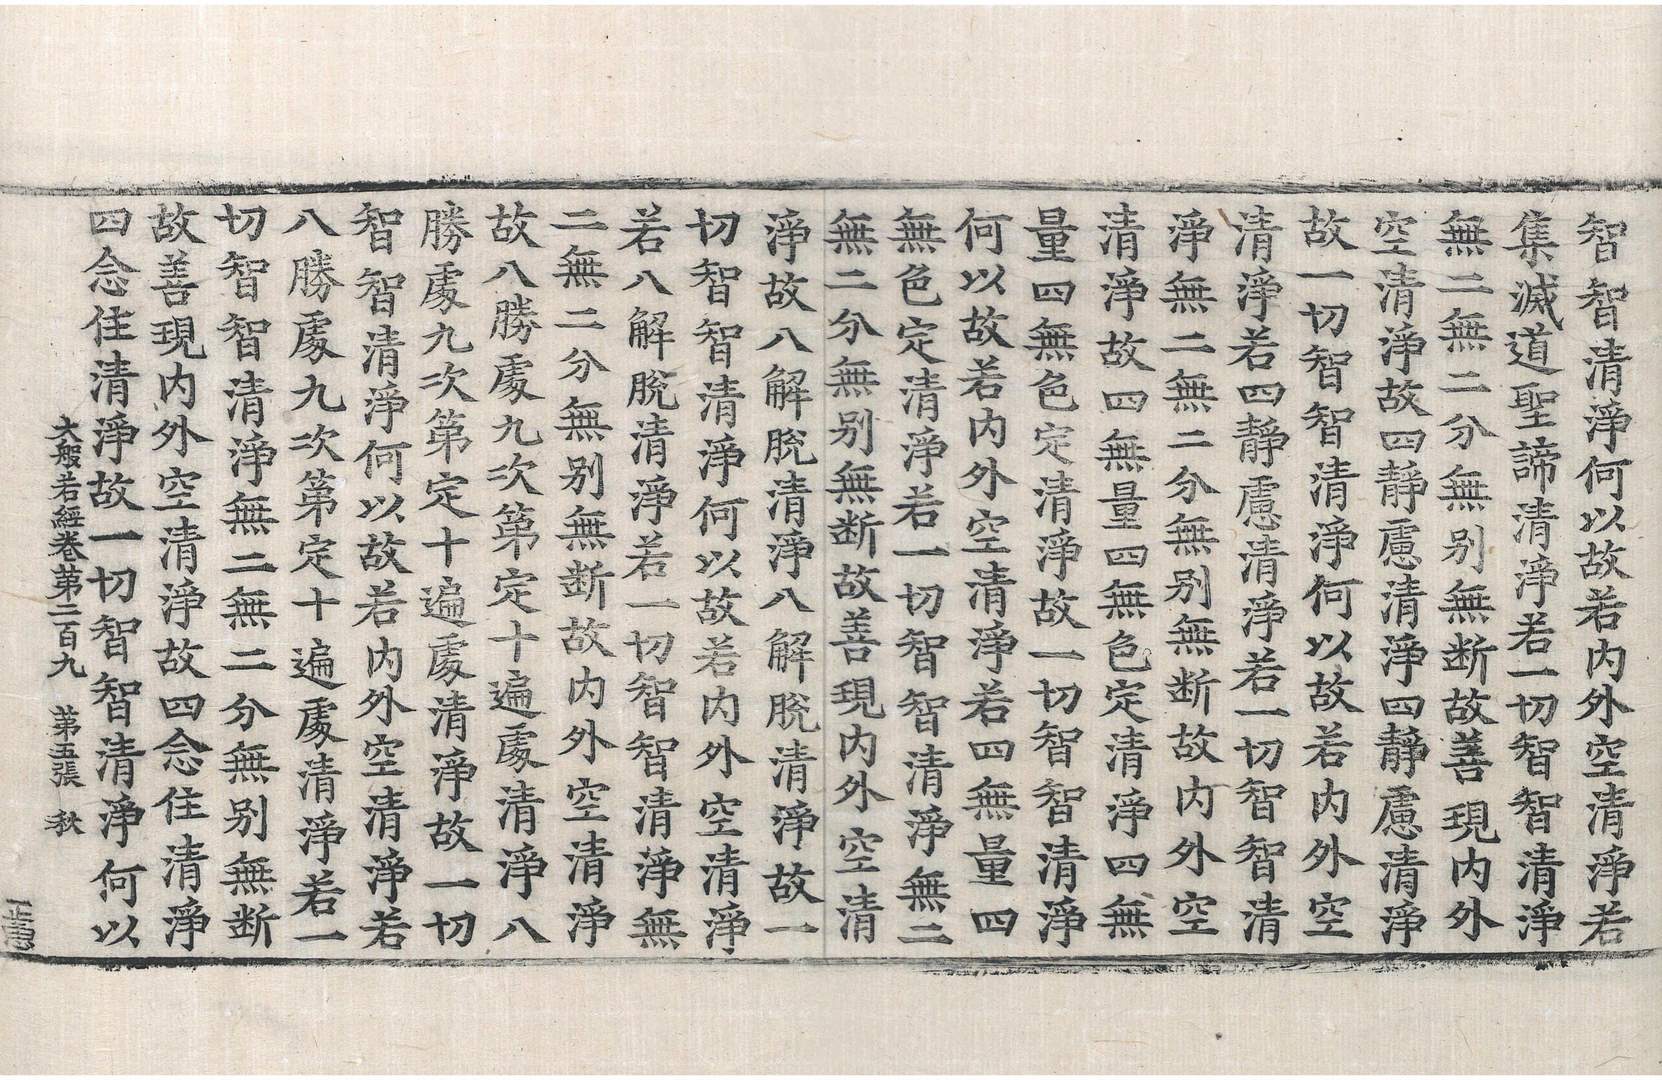 智智清淨何以故若内外空清淨若
集滅道聖諦清淨若一切智智清淨
無二無二分無别無断故善現内外
空清淨故四靜慮清淨四靜慮清淨
故一切智智清淨何以故若内外空
清淨若四靜慮清淨若一切智智清
淨無二無二分無别無断故内外空
清淨故四無量四無色定清淨四無
量四無色定清淨故一切智智清淨
何以故若内外空清淨若四無量四
無色定清淨若一切智智清淨無二
無二分無别無断故善現内外空清
淨故八解脫清淨八解脫清淨故一
切智智清淨何以故若内外空清淨
若八解脫清淨若一切智智清淨無
二無二分無别無断故内外空清淨
故八勝處九次第定十遍處清淨八
勝處九次第定十遍處清淨故一切
智智清淨何以故若内外空清淨若
八勝處九次第定十遍處清淨若一
切智智清淨無二無二分無别無断
故善現内外空清淨故四念住清淨
四念住清淨故一切智智清淨何以
大般若經卷第二百九 第五張 秋